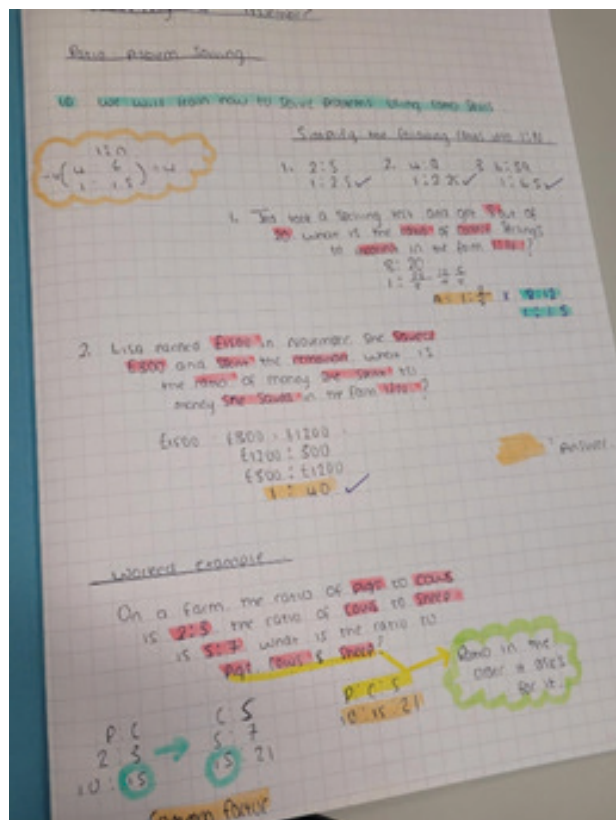 Ratio Problem Solving
LO We will learn how to solve problems using ratio skills
Simplify the following ratios into 1:N
1:n
4 6
1 : 1.5
1. 2:5 2. 4:9 3.
1:2.5 ✓ 1:2.25 ✓ 1:6.5 ✓
1. took a spelling test and got 8 out of
20. what is the ratio of correct spellings
to incorrect in the form 1:n?
8:20
8:12
1:1.5
2. Lisa earned £1500 in November. She saved
£300 and spent the remainder. what is
the ratio of money she spent to
money she saves in the form 1:n?
£1500 - £300 = £1200
£1200 : 300
£300 : £1200
1 : 40 ✓
= Answer
Worked example
On a farm, the ratio of pigs to cows
is 2:3. the ratio of cows to sheep
is 5:7. what is the ratio to
pigs, cows & sheep?
Ratio in the
order it asks
for it.
P:C:S
10:15:21
P:C C:S
2:3 5:7
10:15 15:21
Common factor